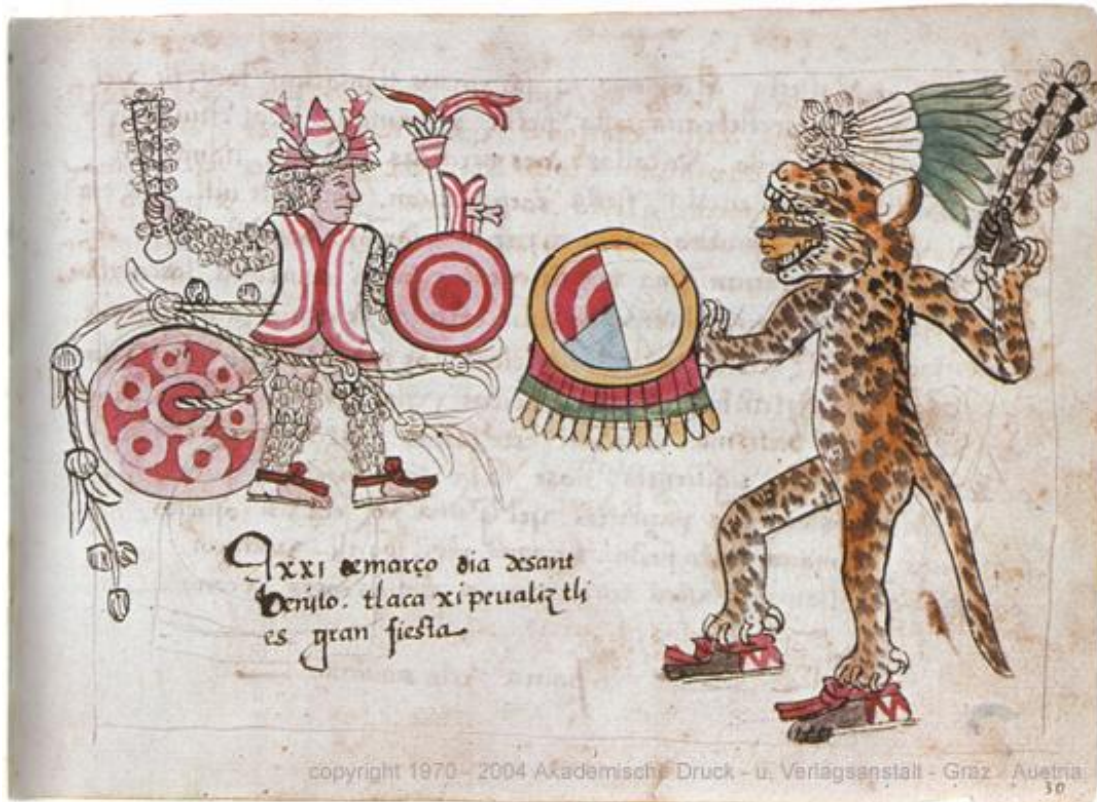 xxi de março dia de sant
benito. tlaca xipeualiztli
es gran fiesta
copyright 1970 - 2004 Akademische Druck - u. Verlagsanstalt - Graz - Austria
30